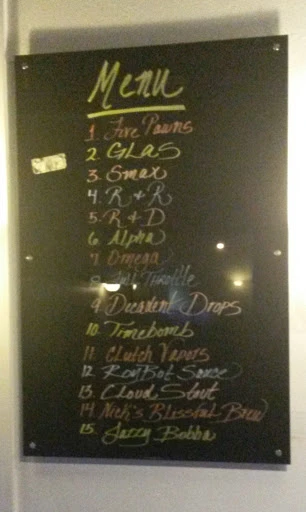 Menu
1. Five Pawns
2. GLAS
3. Smax
4. R & R
5. R & D
6. Alpha
7. Omega
8. Full Throttle
9. Decadent Drops
10. Timebomb
11. Clutch Vapors
12. RoyBot Sauce
13. Cloud Stout
14. Nick's Blissful Brew
15. Jazzy Bobba